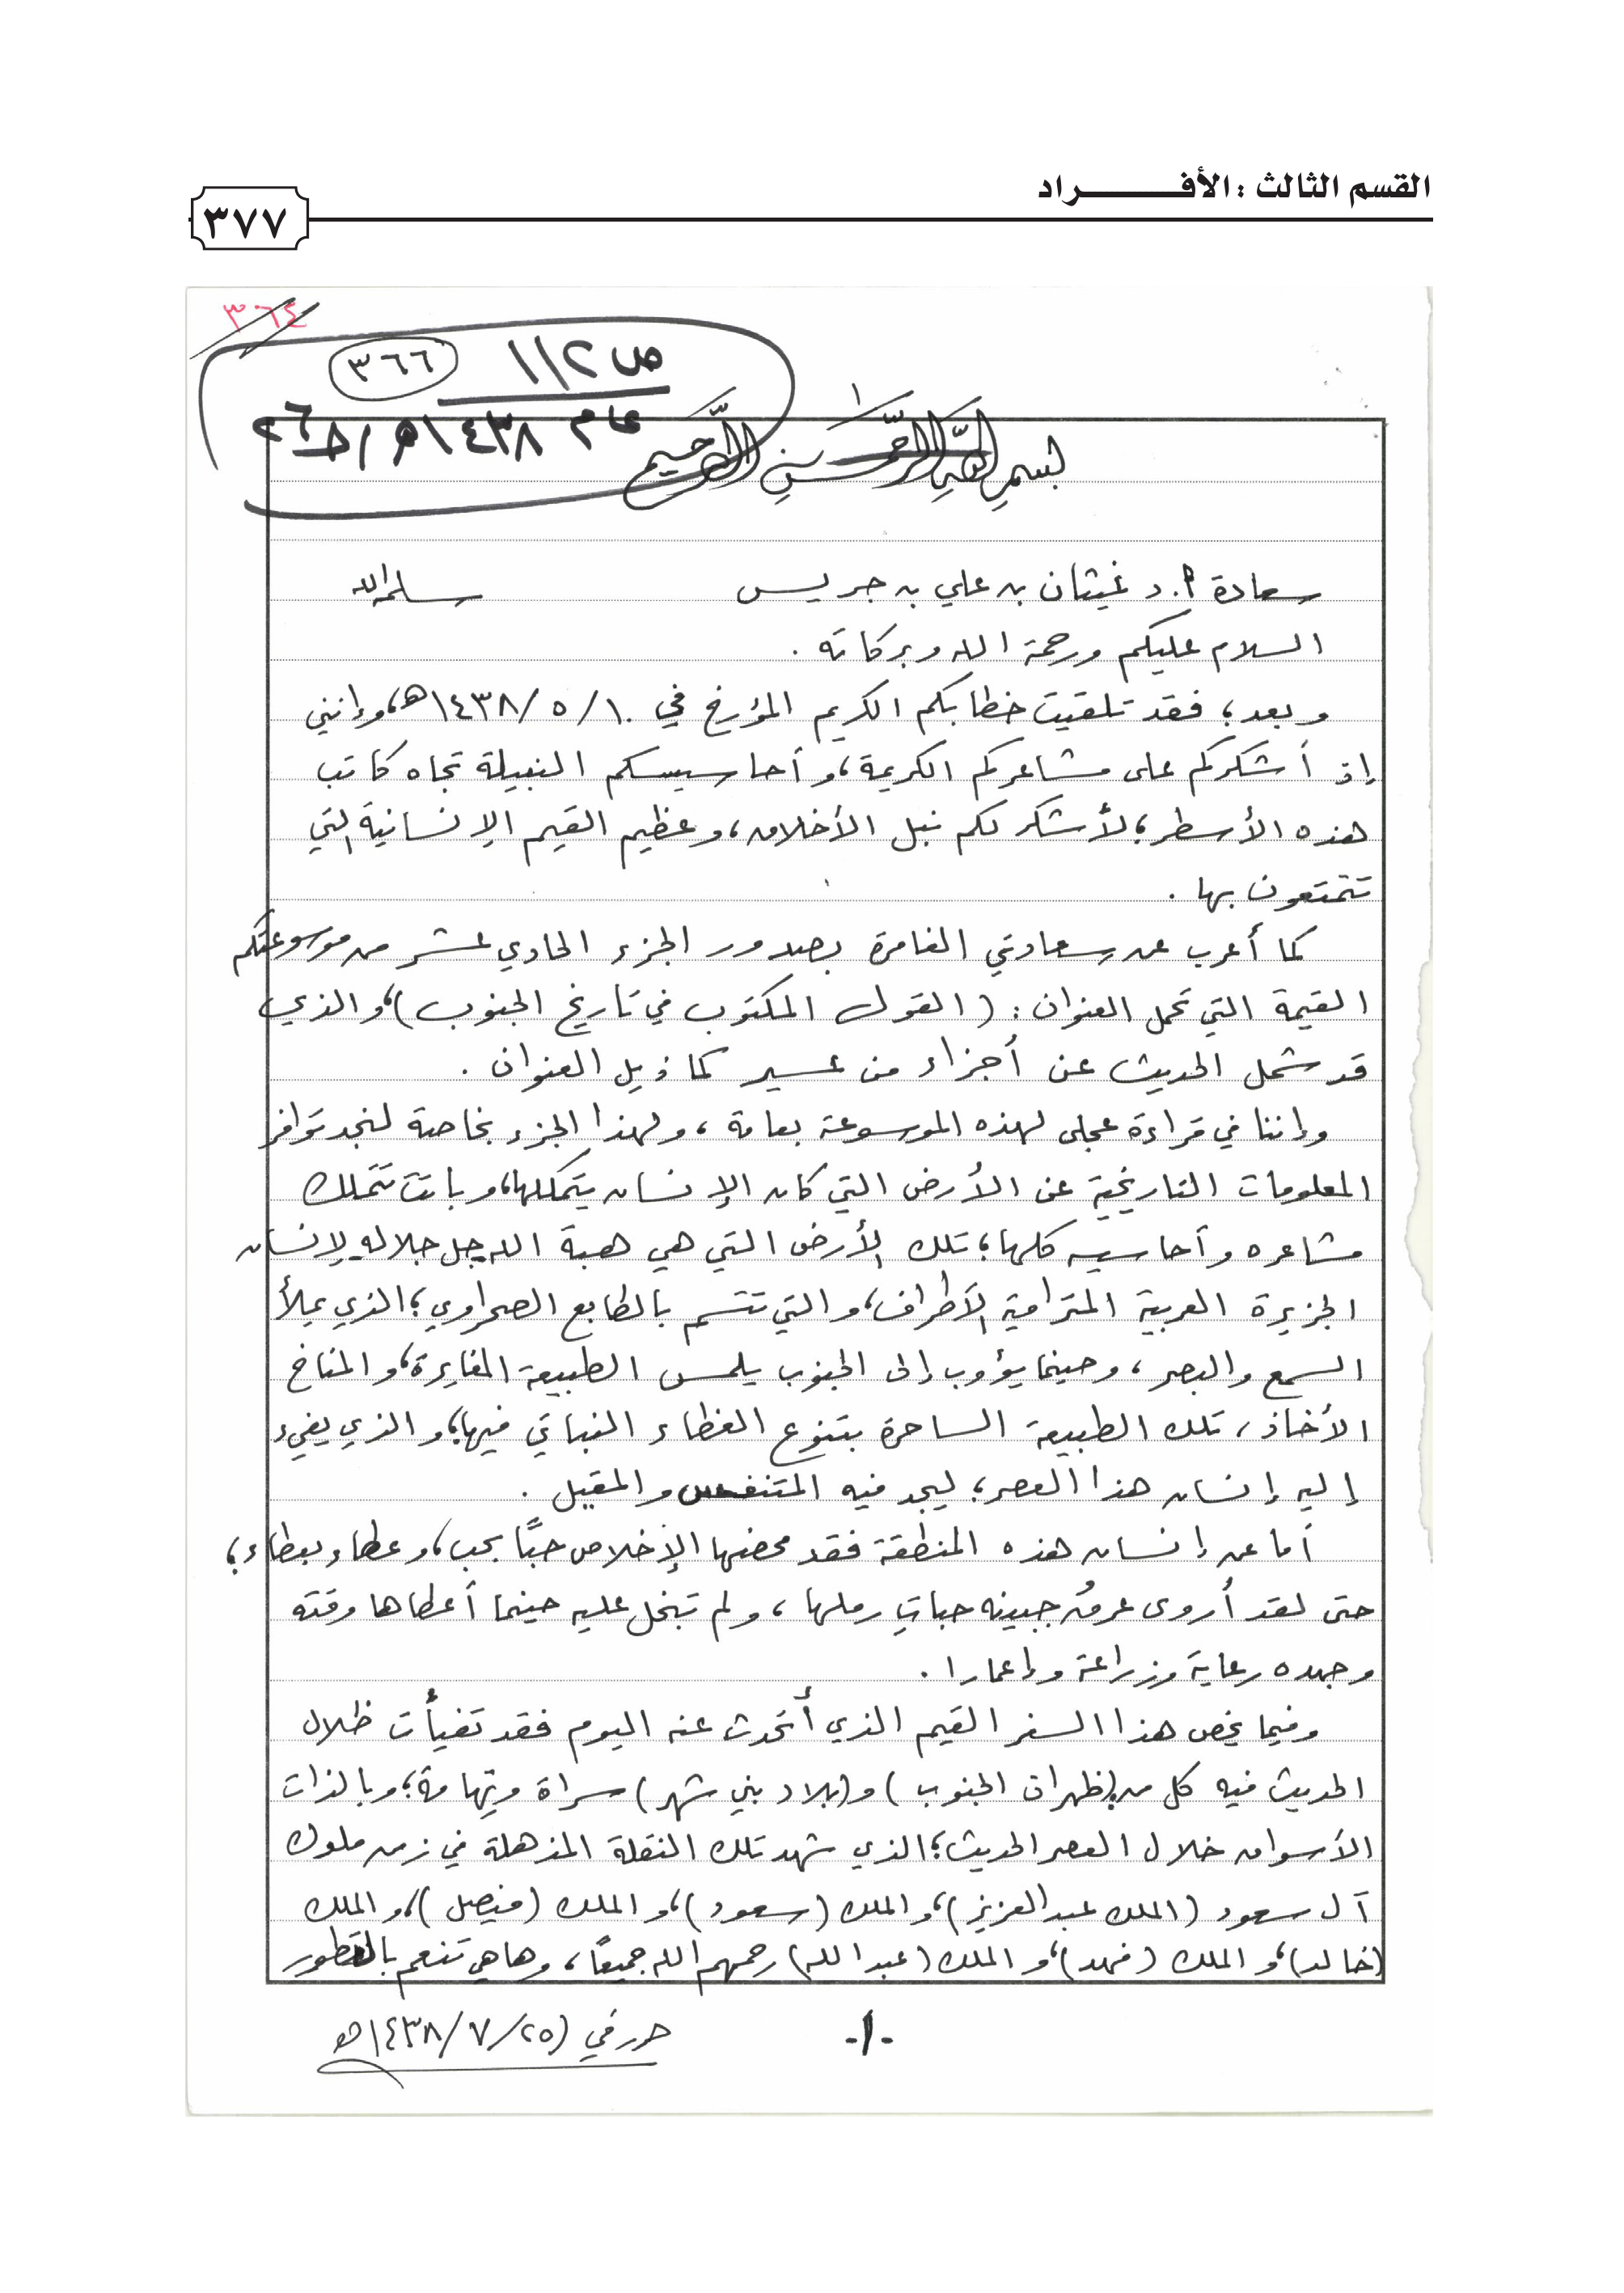 القسم الثالث : الأفـــــــــراد
٣٧٧
٣٦٤
ص ١١٢
٣٦٦
عام ١٤٣٨هـ / ح ٢٦
بسم الله الرحمن الرحيم
سعادة أ.د غيثان بن علي بن جريس سلمه الله
السلام عليكم ورحمة الله وبركاته .
وبعد؛ فقد تلقيت خطابكم الكريم المؤرخ في ١٠/ ٥ /١٤٣٨هـ، وإنني
إذ أشكركم على مشاعركم الكريمة، وأحاسيسكم النبيلة تجاه كاتب
هذه الأسطر؛ لأشكر لكم نبل الأخلاق، وعظيم القيم الإنسانية التي
تتمتعون بها .
كما أعرب عن سعادتي الغامرة بصدور الجزء الحادي عشر من موسوعتكم
القيمة التي تحمل العنوان : ( القول المكتوب في تاريخ الجنوب )، والذي
قد شمل الحديث عن أجزاء من عسير كما ذيل العنوان .
وإننا في قراءة عجلى لهذه الموسوعة بعامة ، ولهذا الجزء بخاصة لنجد توافر
المعلومات التاريخية عن الأرض التي كان الإنسان يتملكها، وباتت تتملك
مشاعره وأحاسيسه كلها؛ تلك الأرض التي هي هبة الله جل جلاله لإنسان
الجزيرة العربية المترامية الأطراف، والتي تتسم بالطابع الصحراوي؛ الذي يملأ
السمع والبصر ، وحينما يؤوب إلى الجنوب يلمس الطبيعة المغايرة، والمناخ
الأخاذ ، تلك الطبيعة الساحرة بتنوع الغطاء النباتي فيها، والذي يفيء
إليه إنسان هذا العصر؛ ليجد فيه المتنفس والمقيل .
أما عن إنسان هذه المنطقة فقد محضها الإخلاص حبًّا بحب، وعطاء بعطاء؛
حتى لقد أروى عرقُ جبينه حباتِ رملها ، ولم تبخل عليه حينما أعطاها وقته
وجهده رعاية وزراعة وإعمارا .
وفيما يخص هذا السفر القيم الذي أتحدث عنه اليوم فقد تفيأت ظلال
الحديث فيه كل من (ظهران الجنوب ) و(بلاد بني شهر ) سراة وتهامة؛ وبالذات
الأسواق خلال العصر الحديث؛ الذي شهد تلك النقلة المذهلة في زمن ملوك
آل سعود ( الملك عبدالعزيز )، والملك ( سعود )، والملك ( فيصل )، والملك
( خالد)، والملك ( فهد )، والملك ( عبدالله ) رحمهم الله جميعًا ، وها هي تنعم بالتطور
-١-
حرر في (٢٥ /٧ /١٤٣٨هـ